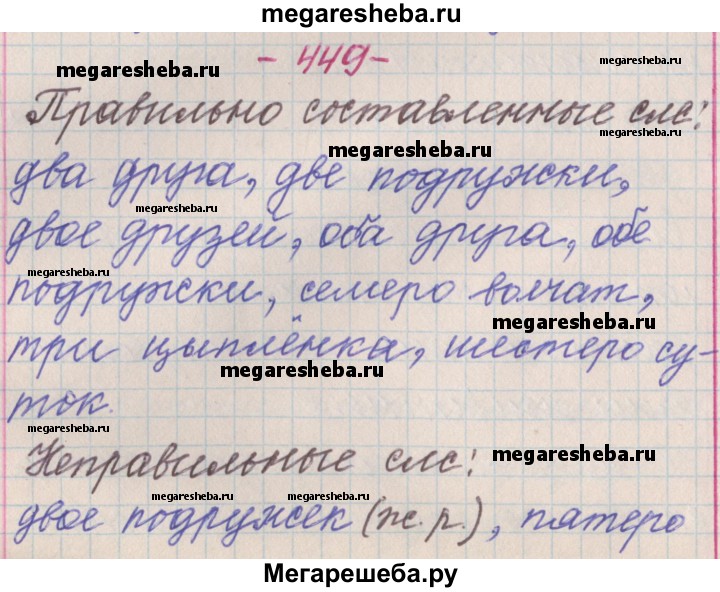 megaresheba.ru
- 449-
megaresheba.ru
megaresheba.ru
Правильно составленные слс:
megaresheba.ru
megaresheba.ru
два друга, две подружки,
megaresheba.ru
двое друзей, оба друга, обе
megaresheba.ru
подружки, семеро волчат,
megaresheba.ru
три цыплёнка, шестеро су-
megaresheba.ru
ток.
megaresheba.ru
Неправильные слс:
megaresheba.ru
megaresheba.ru
megaresheba.ru
двое подружек (ж.р.), пятеро
Мегарешеба.ру